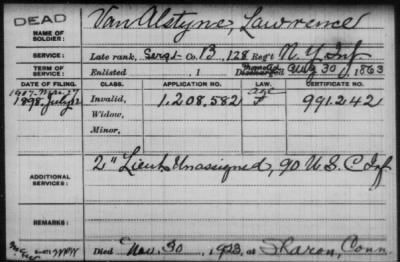 DEAD
NAME OF SOLDIER: Van Alstyne, Lawrence
SERVICE: Late rank, Sergt Co. B, 128 Reg't N.Y. Inf
TERM OF SERVICE: Enlisted , 1 Discharged Aug 30, 1863
DATE OF FILING. CLASS. APPLICATION NO. LAW. CERTIFICATE NO.
1907-Mar-27 Age
1898 July 12 Invalid, 1,208,582 991242
Widow,
Minor,
ADDITIONAL SERVICES: 2" Lieut Unassigned, 90 U.S.C. Inf
REMARKS:
Died Nov. 30, 1923, at Sharon, Conn.